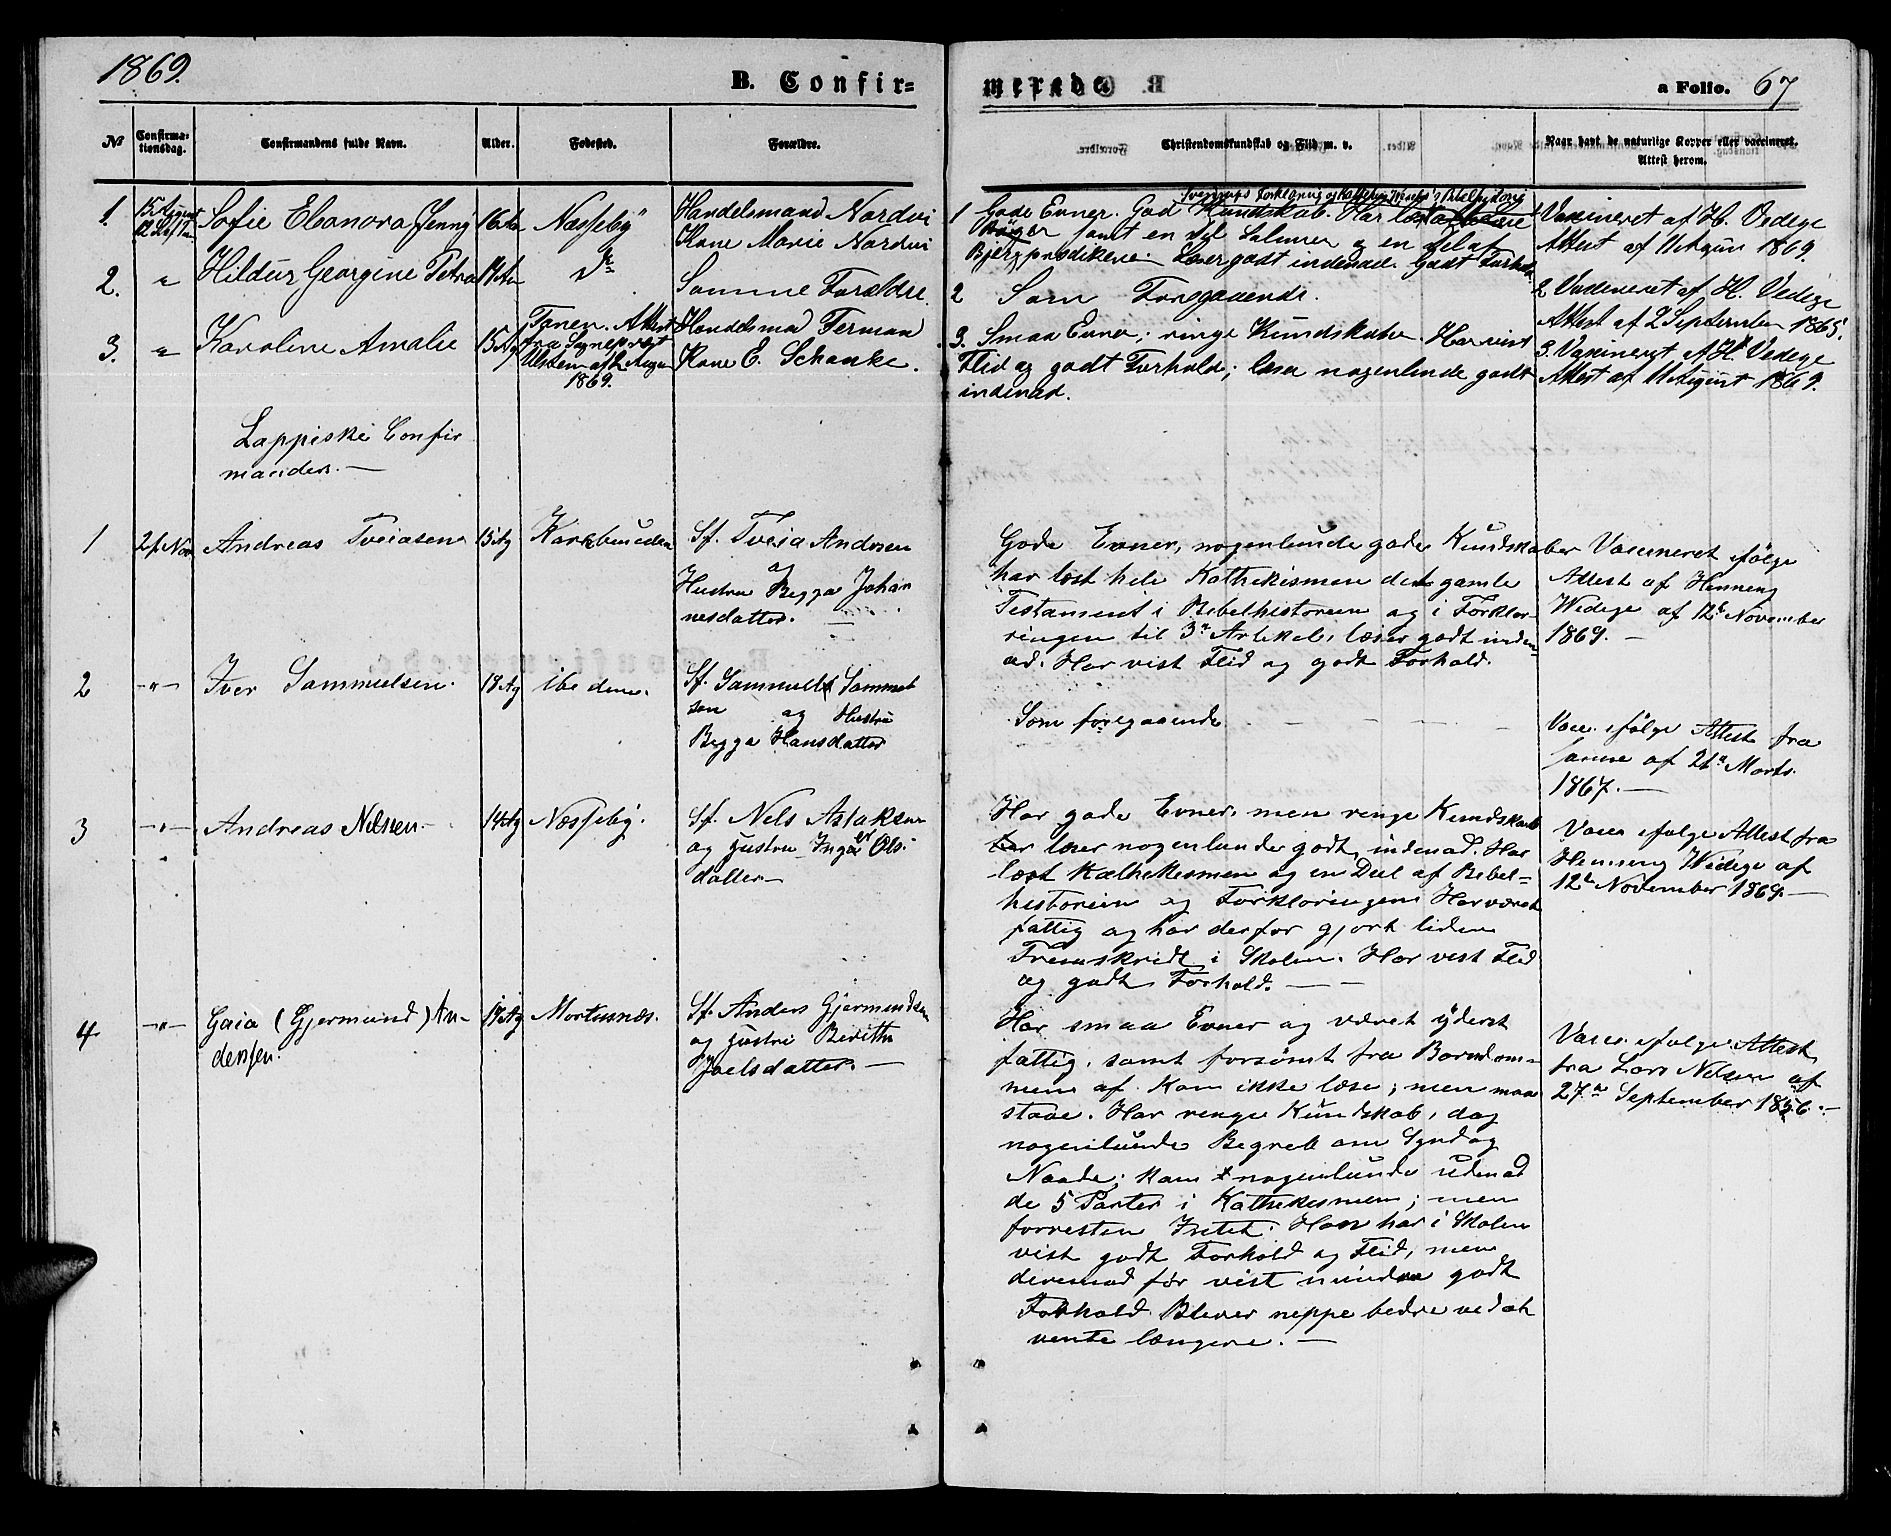 1869.
B. Confir=
merede.
a Folio. 67
№
Confirma-
tionsdag.
Confirmandens fulde Navn.
Alder.
Fødested.
Forældre.
Christendomskundskab og Flid m. v.
Naar havt de naturlige Kopper eller vaccineret.
Attest herom.
1. 15 August Sofie Elanora Jenny 16 Næsseby Handelsmand Nordvi
Kone Marie Nordvi
1 Gode Evner. God Kundskab. Har
Sverdrups Forklaring og
Bøger samt en Del Salmer og en Del af
Bjergprædikene. Læser godt indenad. Godt Forhold
Vaxineret af H. Vedege
Attest af 11 August 1869.
2. " Hildur Georgine Petra Samme Forældre.
2 Som Foregaaende.
2 Vaxineret af H. Vedege
Attest af 2 September 1865.
3. " Karoline Amalie 15 Tanen. Attest
fra Sognepræst
1869.
Handelsmand Ferman
Kone E. Schanke.
3. Smaa Evner; ringe Kundskaber. Har vist
Flid og godt Forhold; læser nogenlunde godt
indenad.
3. Vaxineret af H. Vedege
Attest af 11 August 1869.
Lappiske Confir
mander. —
1 21 Nov Andreas Tveiasen 15 Karlebunden Sf. Tveia Andersen
og
Hustru Begga Johan
nesdatter. —
Gode Evner, nogenlunde gode Kundskaber
har læst hele Kathekismen det gamle
Testament i Bibelhistorien og i Forkla-
ringen til 3 Artikel, læser godt inden-
ad. Har vist Flid og godt Forhold.
Vaccineret ifølge
Attest af Henneng
Wedege af 12 November
1869. —
2 —"— Iver Sammuelsen. ibidem. Sf. Sammuel Sammel
sen og Hustru
Begga Hansdatter
Som foregaaende — — —
Vacc. ifølge Attest fra
samme af 21 Marts
1867. —
3 —"— Andreas Nelsen — 14 Næsseby. Sf. Nels Aslaksen
og Hustru Inger Ols-
datter —
Har gode Evner, men ringe Kundskab
læser nogenlunde godt indenad. Har
læst Kathekismen og en Deel af Bibel=
historien og Forklaringen. Har været
fattig og har derfor gjort liden
Fremskridt i Skolen. Har vist Flid
og godt Forhold. — —
Vacc. ifølge Attest fra
Henneng Wedege af
12 November 1869. —
4 —"— Gaia (Gjermund) An-
dersen. Mortensnæs. Sf. Anders Gjermundsen
og Hustru Berithe
Joelsdatter. —
Har smaa Evner og været yderst
fattig, samt forsømt fra Barndom-
men af. Kan ikke læse; men maa
stave. Har ringe Kundskab, dog
nogenlunde Begreb om Synd og
Naade; kan nogenlunde udenad
de 5 Parter i Kathekismen; men
forresten Intet. Han har i Skolen
vist godt Forhold og Flid, men
derimod før vist mindre godt
Forhold. Bliver neppe bedre ved at
vente længere. —
Vacc. ifølge Attest
fra Lars Nelsen af
27 September 1856. —